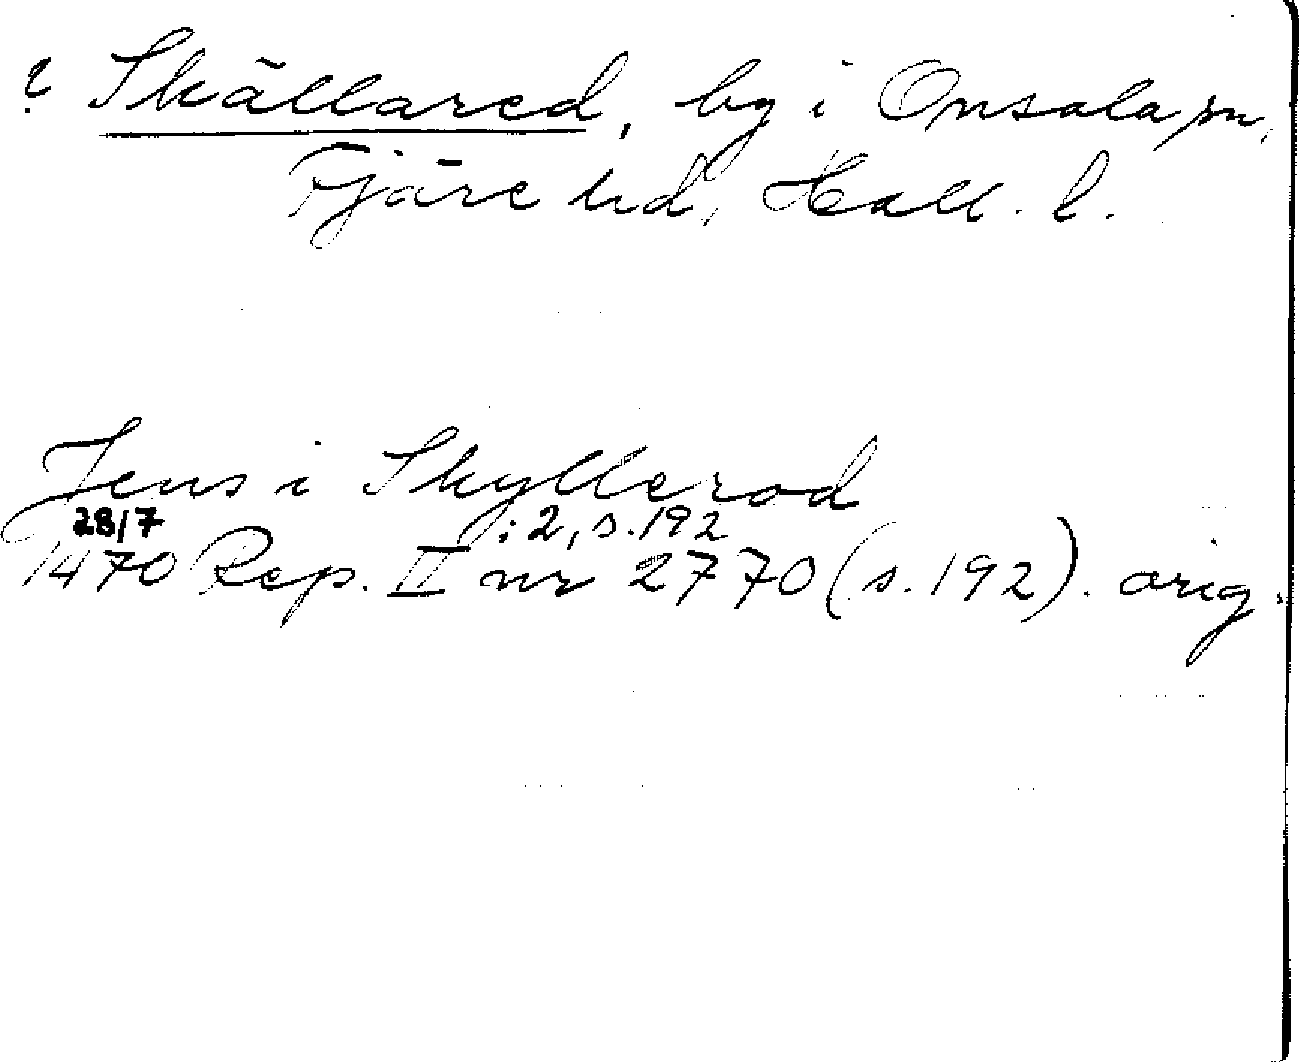 ? Skällared, by i Onsala sn,
Fjäre hd, Hall. l.
Jens i Skyllerod
28/7 :2, s. 192
1470 Rep. II nr 2770 (s. 192). orig.